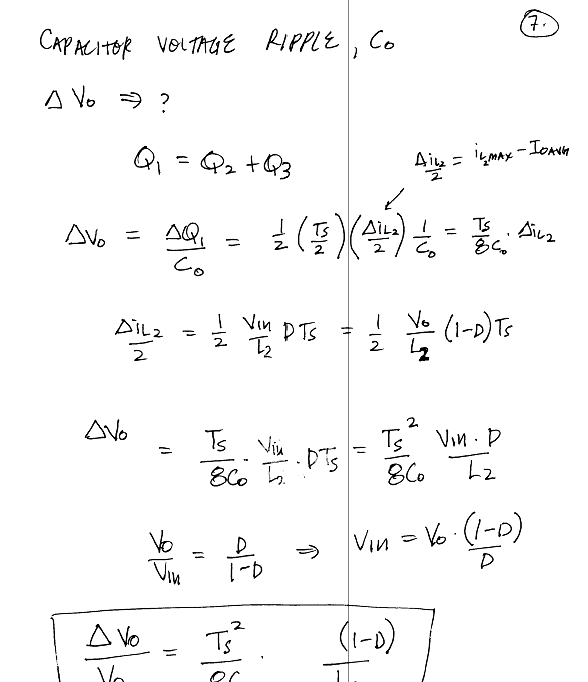 7.
CAPACITOR VOLTAGE RIPPLE, Co
ΔVo ⇒ ?
Q1 = Q2 + Q3
ΔiL2/2 = iL2MAX − IOAVG
ΔVo = ΔQ1/Co = 1/2 (Ts/2)(ΔiL2/2) 1/Co = Ts/8Co · ΔiL2
ΔiL2/2 = 1/2 Vin/L2 DTs = 1/2 Vo/L2 (1-D)Ts
ΔVo = Ts/8Co · Vin/L2 · DTs = Ts²/8Co Vin·D/L2
Vo/Vin = D/1-D ⇒ Vin = Vo · (1-D)/D
ΔVo/Vo = Ts²/8C · (1-D)/L